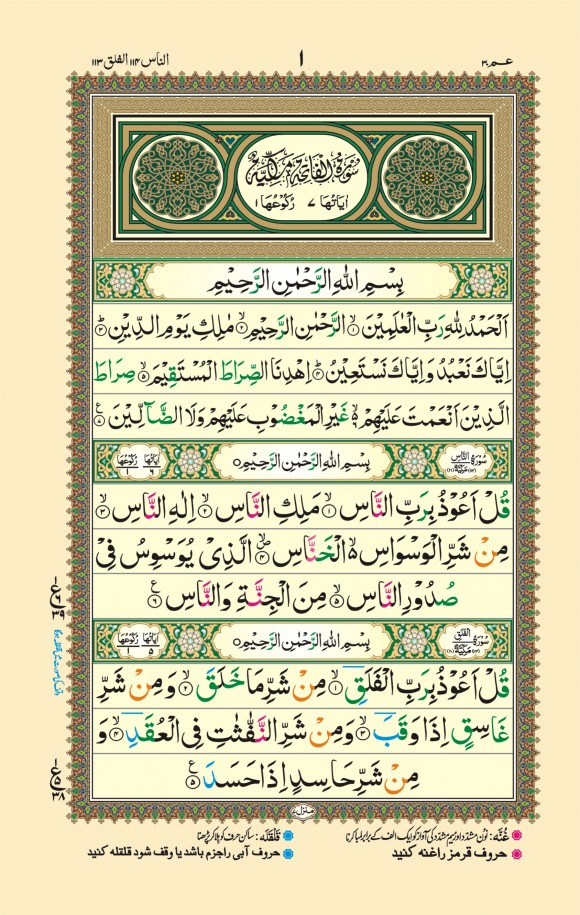 عمّ ۳۰
۱
الناس ۱۱۴ الفلق ۱۱۳
سُوْرَةُ الْفَاتِحَةِ مَكِّيَّةٌ
اٰيَاتُهَا ۷ رُكُوْعُهَا ۱
بِسْمِ اللّٰهِ الرَّحْمٰنِ الرَّحِيْمِ
اَلْحَمْدُ لِلّٰهِ رَبِّ الْعٰلَمِيْنَ ۙ۱ الرَّحْمٰنِ الرَّحِيْمِ ۙ۲ مٰلِكِ يَوْمِ الدِّيْنِ ؕ۳
اِيَّاكَ نَعْبُدُ وَاِيَّاكَ نَسْتَعِيْنُ ؕ۴ اِهْدِنَا الصِّرَاطَ الْمُسْتَقِيْمَ ۙ۵ صِرَاطَ
الَّذِيْنَ اَنْعَمْتَ عَلَيْهِمْ ۙ۬ۦ غَيْرِ الْمَغْضُوْبِ عَلَيْهِمْ وَلَا الضَّآلِّيْنَ
سُوْرَةُ النَّاسِ مَدَنِيَّةٌ
بِسْمِ اللّٰهِ الرَّحْمٰنِ الرَّحِيْمِ
اٰيَاتُهَا ۶ رُكُوْعُهَا ۱
قُلْ اَعُوْذُ بِرَبِّ النَّاسِ ۙ۱ مَلِكِ النَّاسِ ۙ۲ اِلٰهِ النَّاسِ ۙ۳
مِنْ شَرِّ الْوَسْوَاسِ ۙ۬ الْخَنَّاسِ ۪ۙ۴ الَّذِيْ يُوَسْوِسُ فِيْ
صُدُوْرِ النَّاسِ ۙ۵ مِنَ الْجِنَّةِ وَالنَّاسِ ۶ ع
سُوْرَةُ الْفَلَقِ
بِسْمِ اللّٰهِ الرَّحْمٰنِ الرَّحِيْمِ
اٰيَاتُهَا ۵ رُكُوْعُهَا ۱
قُلْ اَعُوْذُ بِرَبِّ الْفَلَقِ ۙ۱ مِنْ شَرِّ مَا خَلَقَ ۙ۲ وَمِنْ شَرِّ
غَاسِقٍ اِذَا وَقَبَ ۙ۳ وَمِنْ شَرِّ النَّفّٰثٰتِ فِي الْعُقَدِ ۙ۴ وَ
مِنْ شَرِّ حَاسِدٍ اِذَا حَسَدَ ۵ ع
منزل ۷
غُنَّه: نون مشدّد اور میم مشدّد کی آواز کو ایک الف کے برابر لمبا کرنا
قَلْقَلَه: ساکن حرف کو ہلا کر پڑھنا
حروف قرمز راغنه کنید
حروف آبی راجزم باشد یا وقف شود قلقله کنید